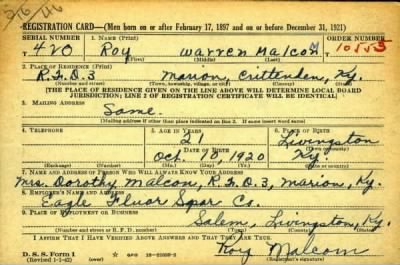 REGISTRATION CARD—(Men born on or after February 17, 1897 and on or before December 31, 1921)
SERIAL NUMBER 1. NAME (Print) ORDER NUMBER
420 Roy Warren Malcom 10553
(First) (Middle) (Last)
2. PLACE OF RESIDENCE (Print)
R.F.D.3 Marion, Crittenden, Ky.
(Number and street) (Town, township, village, or city) (County) (State)
[THE PLACE OF RESIDENCE GIVEN ON THE LINE ABOVE WILL DETERMINE LOCAL BOARD
JURISDICTION; LINE 2 OF REGISTRATION CERTIFICATE WILL BE IDENTICAL]
3. MAILING ADDRESS
Same.
[Mailing address if other than place indicated on line 2. If same insert word same]
4. TELEPHONE 5. AGE IN YEARS 6. PLACE OF BIRTH
21 Livingston
DATE OF BIRTH (Town or county)
Oct. 10, 1920 Ky.
(Exchange) (Number) (Mo.) (Day) (Yr.) (State or country)
7. NAME AND ADDRESS OF PERSON WHO WILL ALWAYS KNOW YOUR ADDRESS
Mrs. Dorothy Malcon, R.F.D.3, Marion, Ky.
8. EMPLOYER'S NAME AND ADDRESS
Eagle Fluor Spar Co.
9. PLACE OF EMPLOYMENT OR BUSINESS
Salem, Livingston, Ky.
(Number and street or R. F. D. number) (Town) (County) (State)
I AFFIRM THAT I HAVE VERIFIED ABOVE ANSWERS AND THAT THEY ARE TRUE.
D. S. S. Form 1
(Revised 1-1-42) Roy Malcom